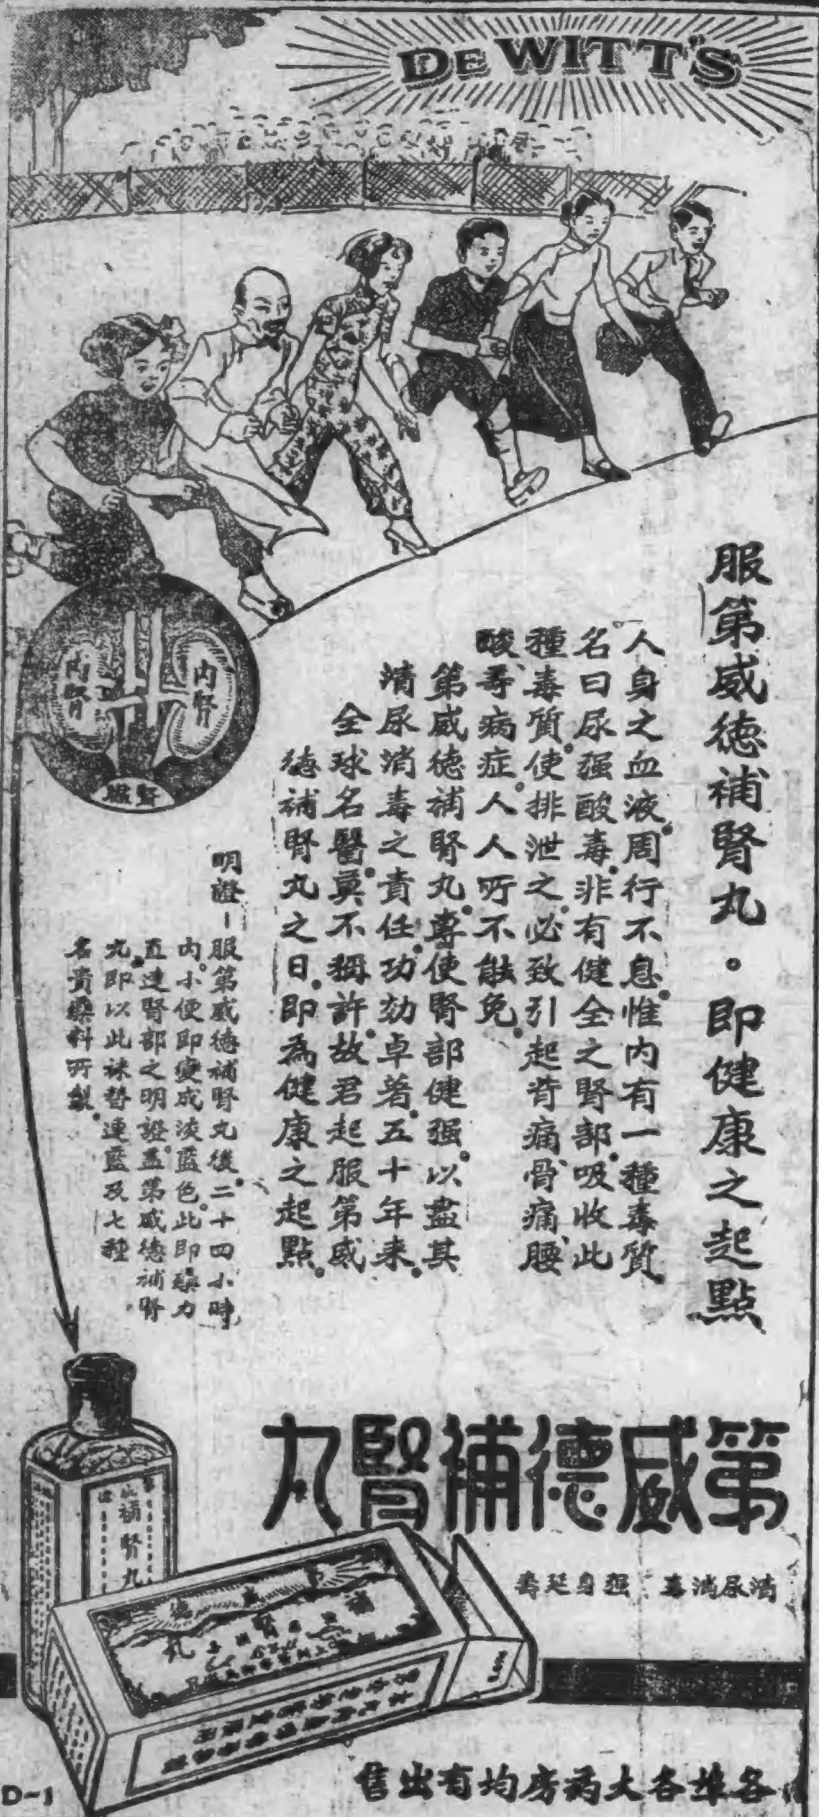 DE WITT'S
服第威德補腎丸。即健康之起點
人身之血液周行不息。惟內有一種毒質。
名曰尿强酸毒。非有健全之腎部。吸收此
種毒質。使排泄之。必致引起背痛、骨痛、腰
酸等病症。人人所不能免。
第威德補腎丸。專使腎部健强。以盡其
清尿消毒之責任。功効卓著。五十年來。
全球名醫。莫不稱許。故君起服第威
德補腎丸之日。即為健康之起點。
內腎
內腎
腎服
明證－服第威德補腎丸後。二十四小時
內。小便即變成淡藍色。此即藥力
直達腎部之明證。蓋第威德補腎
丸。即以此連藍及七種
名貴藥料所製。
第威德補腎丸
清尿消毒 强身延壽
補腎丸
各埠各大藥房均有出售
D-1